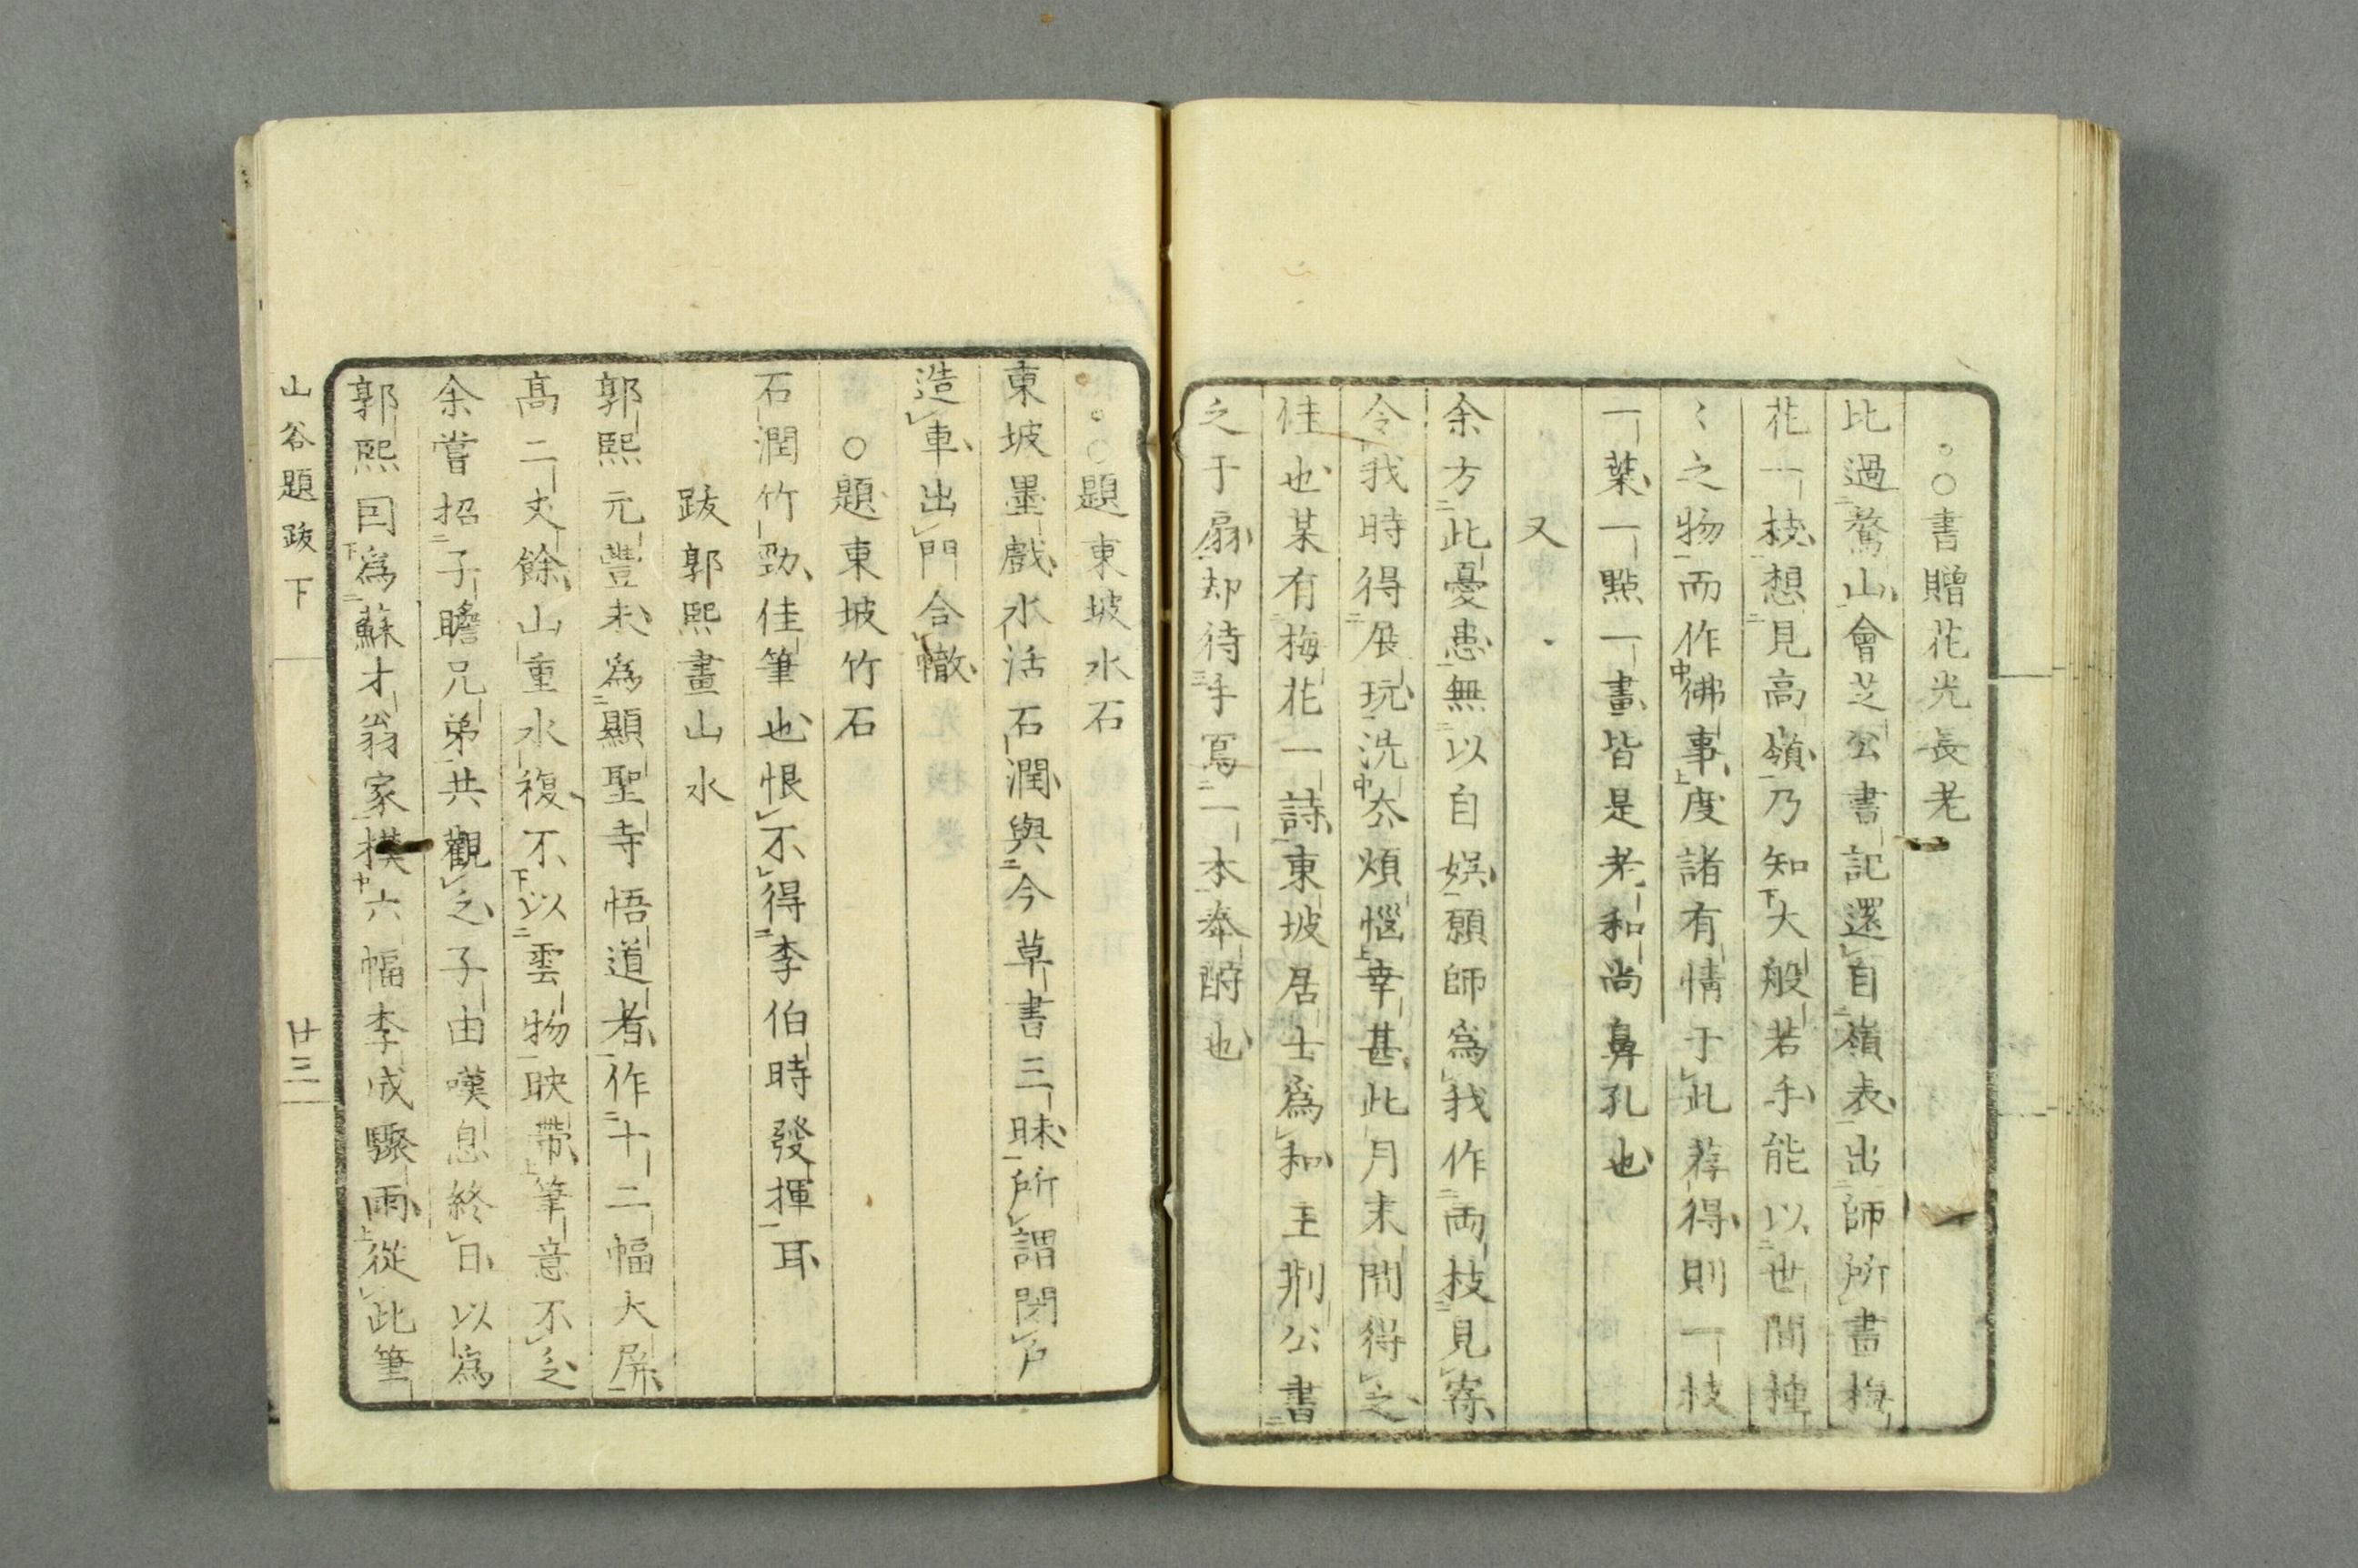 ○書贈花光長老
比過鶩山會芝公書記還自嶺表出師所畫梅
花一枝想見高嶺乃知大般若手能以世間種
〻之物而作佛事度諸有情于此荐得則一枝
一葉一點一畫皆是老和尚鼻孔也
又
余方此憂患無以自娯願師為我作兩枝見寄
令我時得展玩洗厺煩惱幸甚此月末間得之
佳也某有梅花一詩東坡居士為和主荆公書
之于扇却待手寫一本奉酧也
○題東坡水石
東坡墨戲水活石潤與今草書三昧所謂閉户
造車出門合轍
○題東坡竹石
石潤竹勁佳筆也恨不得李伯時發揮耳
跋郭熙畫山水
郭熙元豐末為顯聖寺悟道者作十二幅大屏
高二丈餘山重水複不以雲物映帶筆意不乏
余嘗招子瞻兄弟共觀之子由嘆息終日以為
郭熙因為蘇才翁家摸六幅李成驟雨從此筆
山谷題跋下
廿三